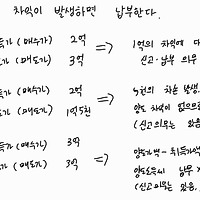 차익이 발생하면 납부한다.
득가 (매수가) 2억 ⇒ 1억의 차익에 대
가 (매도가) 3억 신고·납부 의무
득가 (매수가) 2억 ⇒ 5천의 차손 발생.
가 (매도가) 1억5천 양도 차익이 없으므로
(신고의무는 있음
득가 (매수가) 3억 ⇒ 양도가액 - 취득가액
가 (매도가) 3억 양도소득세 납부 X
(신고의무는 있음,